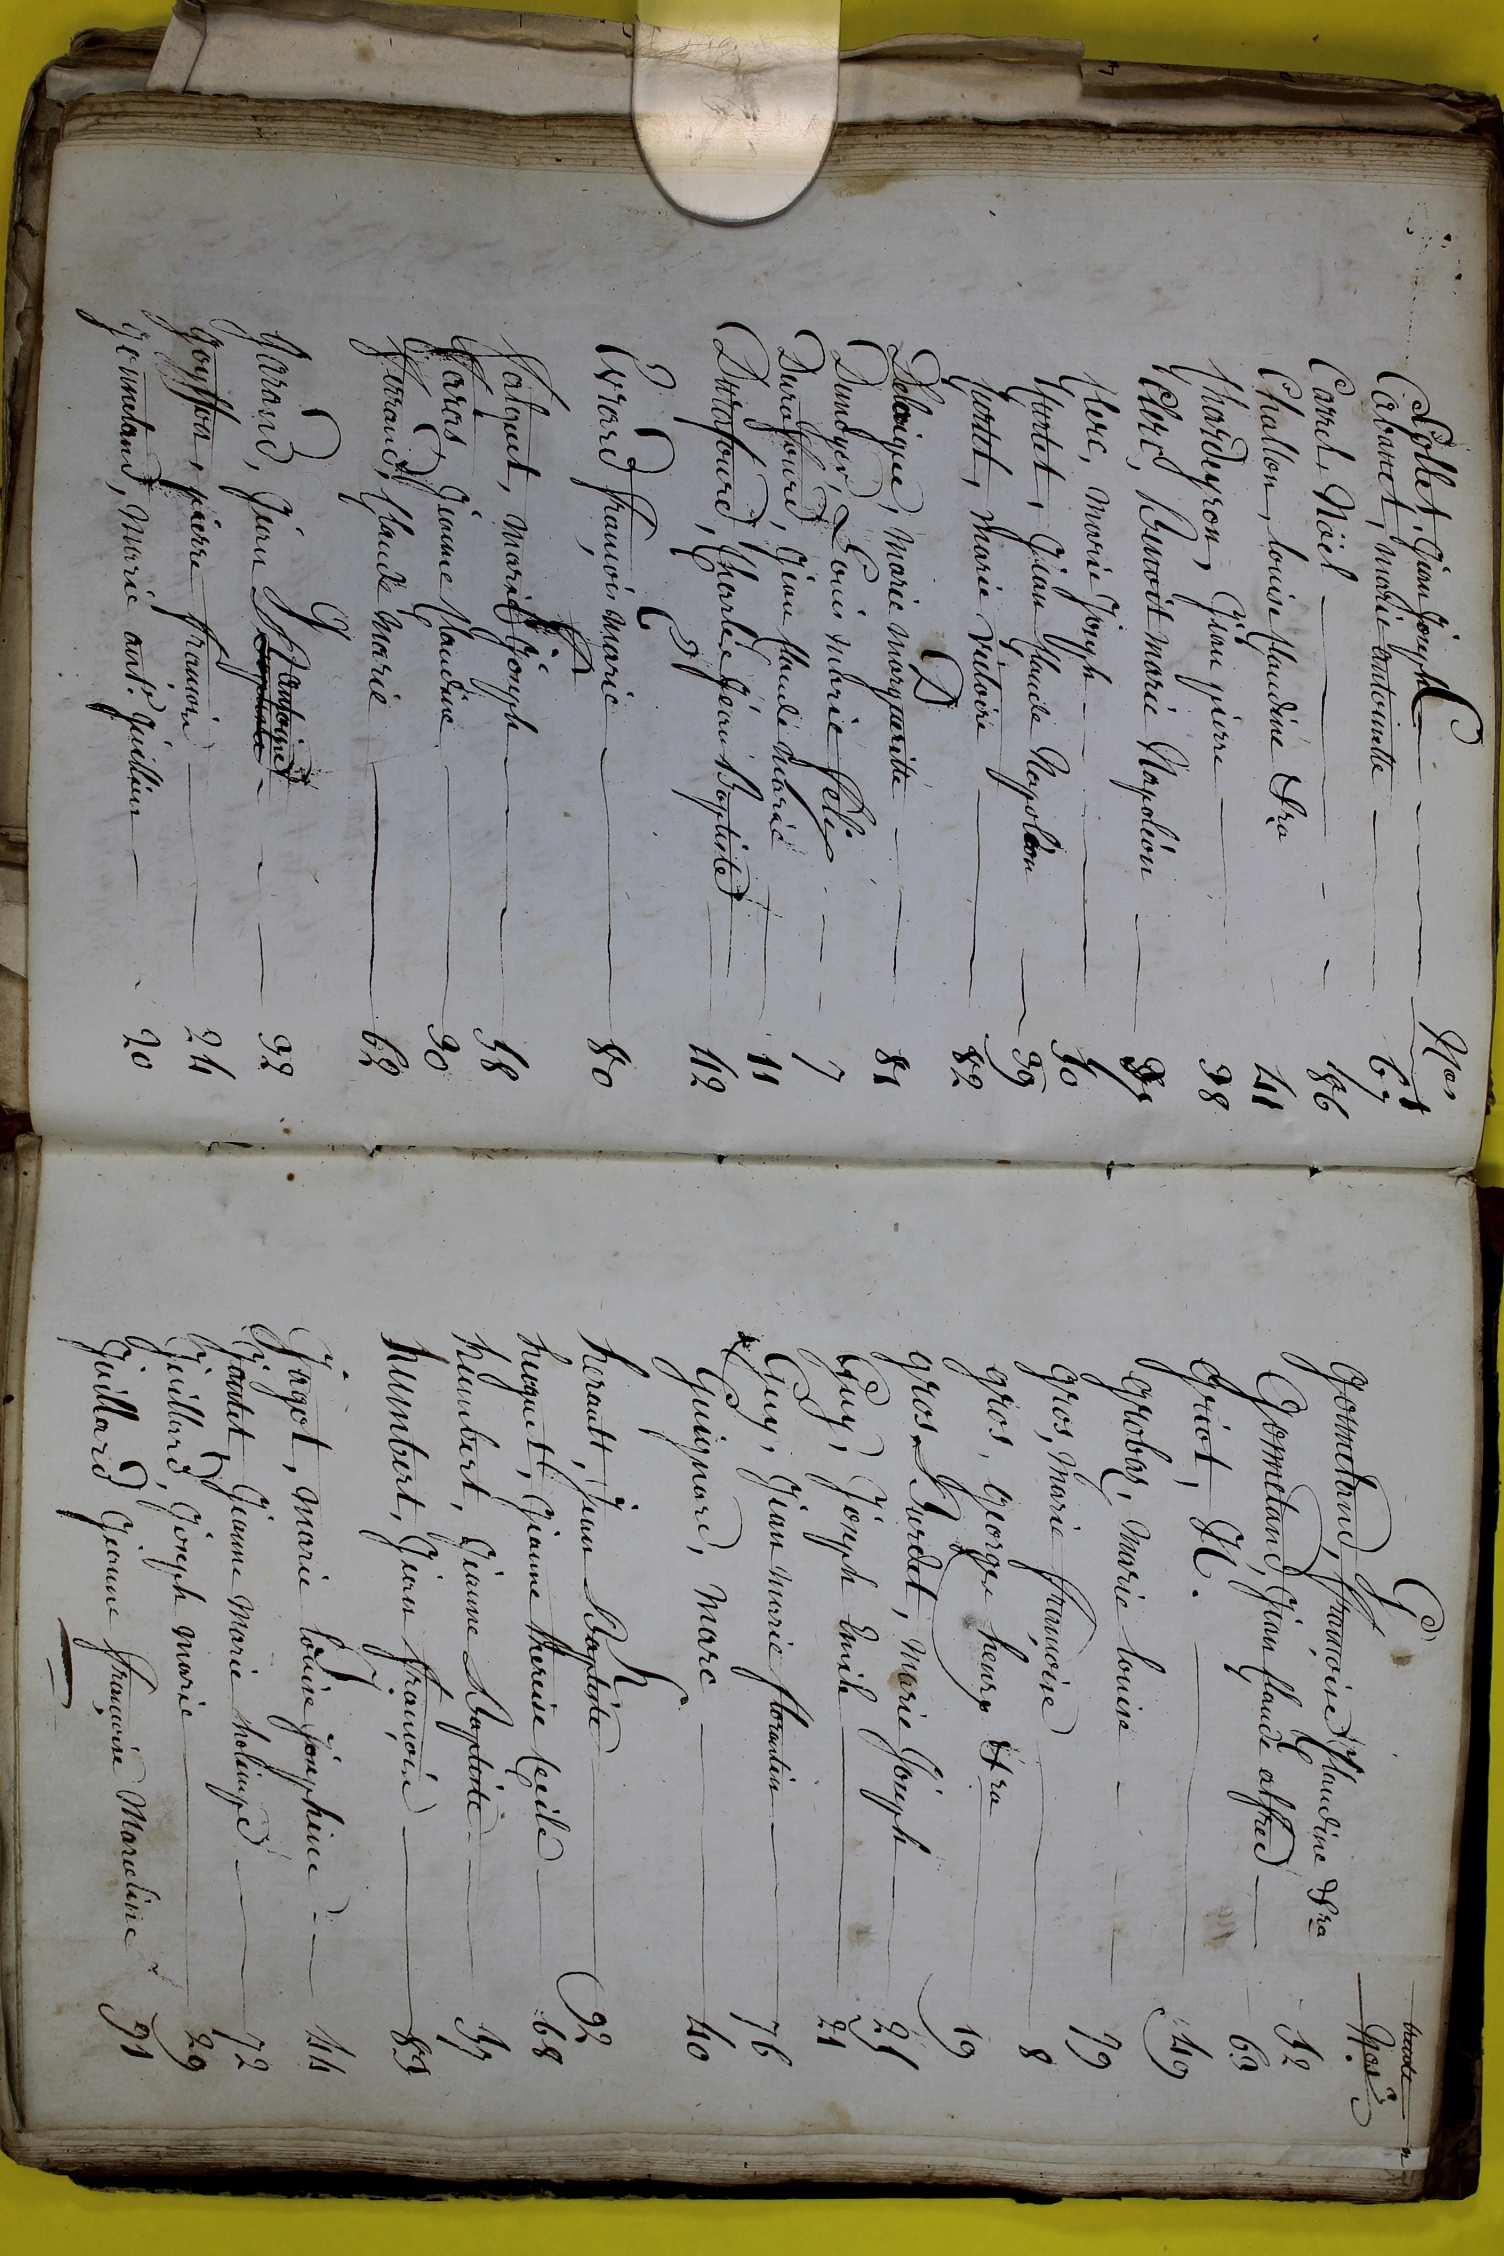 C
Nos
Collet, Jean Joseph
Cabanet, Marie antoinette 67
Carrel, Noël 86
Challon, louise Claudine &ra 41
Chardeyron, Jean pierre 98
Clerc, Benoit Marie Napoléon
Clerc, Marie Joseph
Curtet, Jean Claude Napoléon 99
Curtet, Marie Victoire 82
D
Marie Marguerite 81
Dunoyer, Louis Marie felix 7
Durafourd, Jean Claude Marie 11
Durafourd, Charles Jean Baptiste 42
E
Evrard françois Marie 80
F
Falquet, Marie Joseph 58
Jeanne Claudine 90
Claude Marie 62
G
Garand, Jean antoine 92
Goyffon, pierre françois 24
Gonnetand, Marie ant.e Jullien 20
G
Nos
Gonnetand, françoise Claudine &ra 52
Gonnetand, Jean Claude alfred 63
Gricot, N. 49
Grobas, Marie louise 79
Gros, Marie françoise 8
Gros, George henry &ra 19
Gros Burdet, Marie Joseph 25
Guy, Joseph Emile 21
Guy, Jean Marie florentin 76
Guignard, Marc 40
h
herault, Jean Baptiste 92
huguet, Jeanne therese Cecile 68
humbert, Jeanne Baptiste 37
humbert, Jean françois 83
J
Jagot, Marie louise josephine 44
Jantet, Jeanne Marie 72
Juillard, Joseph Marie 29
Juillard Jeanne françoise Marceline 91